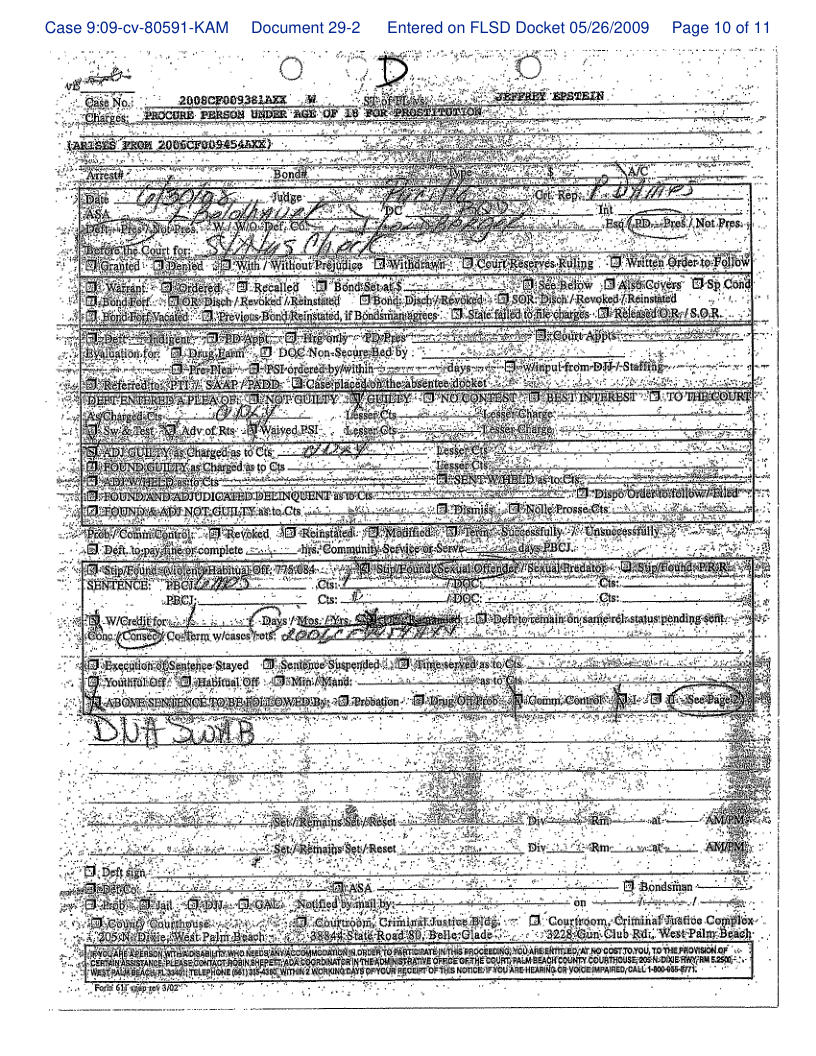 Case 9:09-cv-80591-KAM Document 29-2 Entered on FLSD Docket 05/26/2009 Page 10 of 11
D
Case No.: 2008CF009381AXX W ST of FL vs. JEFFREY EPSTEIN
Charges: PROCURE PERSON UNDER AGE OF 18 FOR PROSTITUTION
(ARISES FROM 2006CF009454AXX)
Arrest# Bond# Type $ A/C
Date 6/30/08 Judge Crt. Rep.
ASA DC Int
Deft. Pres / Not Pres. W / W/O Def. Co. Esq / PD - Pres / Not Pres.
Before the Court for: Status Check
Granted Denied With / Without Prejudice Withdrawn Court Reserves Ruling Written Order to Follow
Warrant Ordered Recalled Bond Set at $ See Below Also Covers Sp Cond
Bond Forf. OR Disch / Revoked / Reinstated Bond: Disch / Revoked SOR: Disch / Revoked / Reinstated
Bond Forf Vacated Previous Bond Reinstated, if Bondsman agrees State failed to file charges Released O.R. / S.O.R.
Deft. Indigent PD Appt. Hrg only PD Pres Court Appts
Evaluation for: Drug Farm DOC Non-Secure Bed by
Pre-Plea PSI ordered by/within days w/input from DJJ / Staffing
Referred to: PTI / SAAP / PADD Case placed on the absentee docket
DEFT ENTERS A PLEA OF: NOT GUILTY GUILTY NO CONTEST BEST INTEREST TO THE COURT
As Charged Cts ONLY Lesser Cts Lesser Charge
Sw & Test Adv of Rts Waived PSI Lesser Cts Lesser Charge
ADJ GUILTY as Charged as to Cts ONLY Lesser Cts
FOUND GUILTY as Charged as to Cts Lesser Cts
ADJ W/HELD as to Cts SENT W/HELD as to Cts
FOUND AND ADJUDICATED DELINQUENT as to Cts Dispo Order to follow / Filed
FOUND & ADJ NOT GUILTY as to Cts Dismiss Nolle Prosse Cts
Prob / Comm Control: Revoked Reinstated Modified Term: Successfully / Unsuccessfully
Deft. to pay fine or complete hrs. Community Service or Serve days PBCJ.
Stip/Found (violent) Habitual Off. 775.084 Stip/Found Sexual Offender / Sexual Predator Stip/Found P.R.R.
SENTENCE: PBCJ 6 mos Cts: 1 / DOC: Cts:
PBCJ: Cts: / DOC: Cts:
W/Credit for Days / Mos. / Yrs. Remanded Deft to remain on same rel. status pending sent.
Conc / Consec / Co-Term w/cases / cts: 2006CF9454AXX
Execution of Sentence Stayed Sentence Suspended Time served as to Cts
Youthful Off Habitual Off Min / Mand: as to Cts
ABOVE SENTENCE TO BE FOLLOWED By: Probation Drug Off Prob Comm. Control I II See Page 2
DNA SWAB
Set / Remains Set / Reset Div Rm at AM/PM
Set / Remains Set / Reset Div Rm at AM/PM
Deft sign
Def Co ASA Bondsman
Prob Jail DJJ GAL Notified by mail by: on / /
County Courthouse Courtroom, Criminal Justice Bldg. Courtroom, Criminal Justice Complex
205 N. Dixie, West Palm Beach 38844 State Road 80, Belle Glade 3228 Gun Club Rd., West Palm Beach
IF YOU ARE A PERSON WITH A DISABILITY WHO NEEDS ANY ACCOMMODATION IN ORDER TO PARTICIPATE IN THIS PROCEEDING, YOU ARE ENTITLED, AT NO COST TO YOU, TO THE PROVISION OF
CERTAIN ASSISTANCE. PLEASE CONTACT ROBIN SHEPETT, ADA COORDINATOR IN THE ADMINISTRATIVE OFFICE OF THE COURT, PALM BEACH COUNTY COURTHOUSE, 205 N. DIXIE HWY, RM 5.2500,
WEST PALM BEACH, FL 33401; TELEPHONE (561) 355-4380, WITHIN 2 WORKING DAYS OF YOUR RECEIPT OF THIS NOTICE; IF YOU ARE HEARING OR VOICE IMPAIRED, CALL 1-800-955-8771.
Form 611 snap rev 3/02